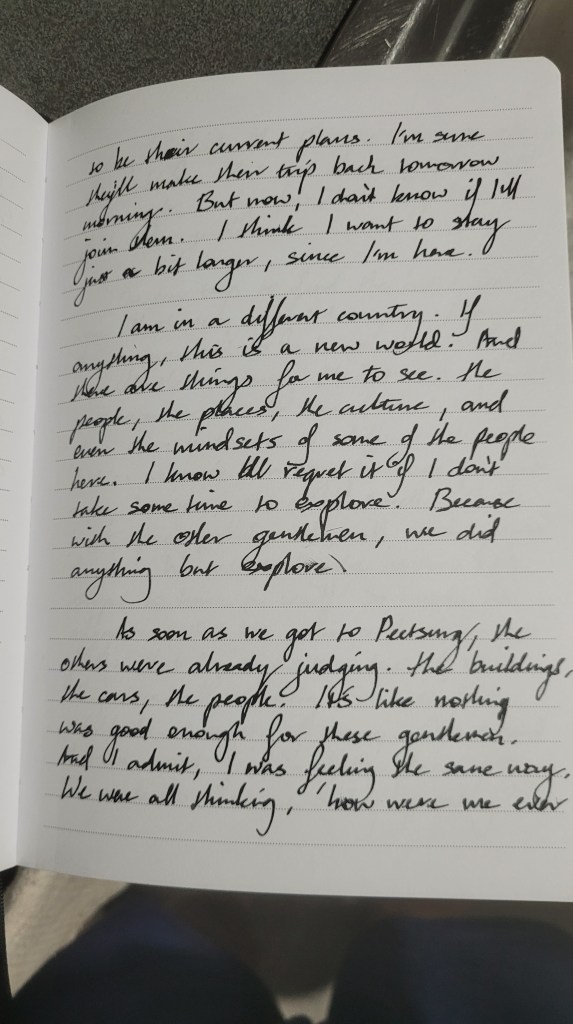 to be their current plans. I'm sure
they'll make their trip back tomorrow
morning. But now, I don't know if I'll
join them. I think I want to stay
just a bit longer, since I'm here.
I am in a different country. If
anything, this is a new world. And
there are things for me to see. The
people, the places, the culture, and
even the mindsets of some of the people
here. I know I'll regret it if I don't
take some time to explore. Because
with the other gentlemen, we did
anything but explore.
As soon as we got to, the
others were already judging. The buildings,
the cars, the people. It's like nothing
was good enough for these gentlemen.
And I admit, I was feeling the same way.
We were all thinking, 'how were we ever